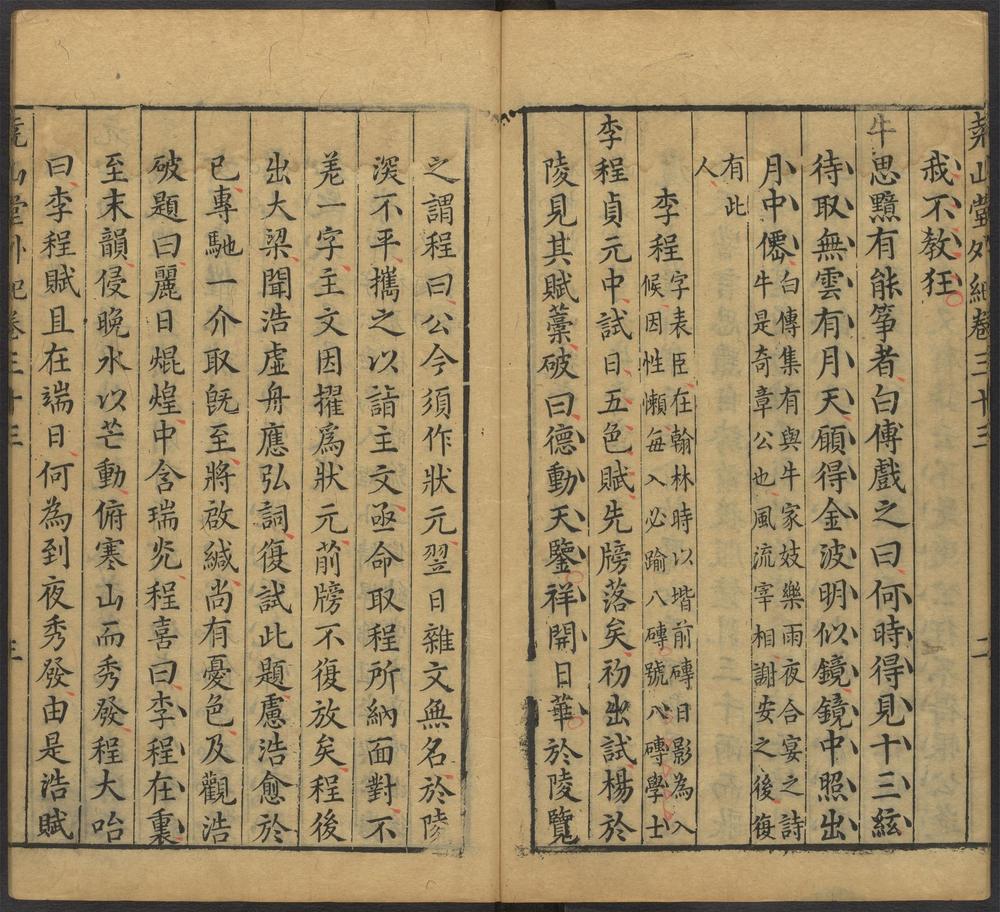 堯山堂外紀卷三十三 二
我不教狂
牛思黯有能箏者白傅戲之曰何時得見十三絃
待取無雲有月天願得金波明似鏡鏡中照出
月中僊白傅集有與牛家妓樂雨夜合宴之詩
牛是奇章公也風流宰相謝安之後復
有此
人
李程字表臣在翰林時以堦前磚日影為入
候因性懶每入必踰八磚號八磚學士
李程貞元中試日五色賦先牓落矣初出試楊於
陵見其賦藁破曰德動天鑒祥開日華於陵覽
之謂程曰公今須作狀元翌日雜文無名於陵
深不平攜之以詣主文亟命取程所納面對不
差一字主文因擢為狀元前牓不復放矣程後
出大梁聞浩虛舟應弘詞復試此題慮浩愈於
已專馳一介取旣至將啟緘尚有憂色及觀浩
破題曰麗日焜煌中含瑞光程喜曰李程在裏
至末韻侵晚水以芒動俯寒山而秀發程大咍
曰李程賦且在端日何為到夜秀發由是浩賦
堯山堂外紀卷三十三